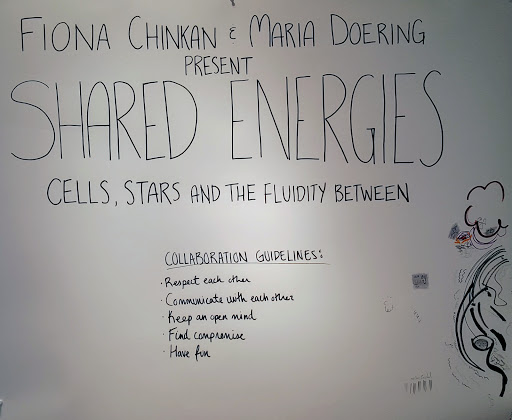 FIONA CHINKAN & MARIA DOERING
PRESENT
SHARED ENERGIES
CELLS, STARS AND THE FLUIDITY BETWEEN
COLLABORATION GUIDELINES:
· Respect each other
· Communicate with each other
· Keep an open mind
· Find compromise
· Have fun